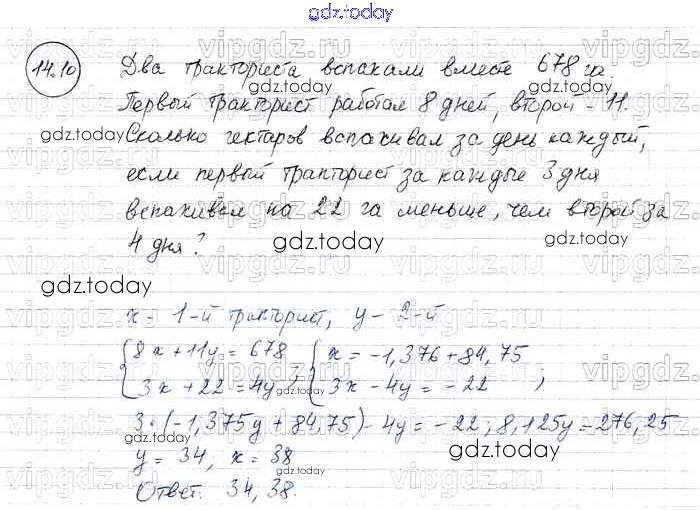 gdz.today
14.10 Два тракториста вспахали вместе 678 га.
Первый тракторист работал 8 дней, второй - 11.
Сколько гектаров вспахивал за день каждый,
если первый тракторист за каждые 3 дня
вспахивал на 22 га меньше, чем второй за
4 дня?
x - 1-й тракторист, y - 2-й
{8x+11y = 678 {x = -1,376 + 84,75
{3x + 22 = 4y , {3x - 4y = -22 ;
3·(-1,375y + 84,75) - 4y = -22; 8,125y = 276,25
y = 34; x = 38
Ответ: 34, 38.
vipgdz.ru
gdz.today